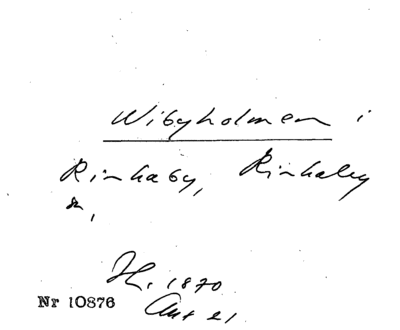 Wibyholmen i
Rinkaby, Rinkaby
sn,
H. 1870
Ant 21
Nr 10876